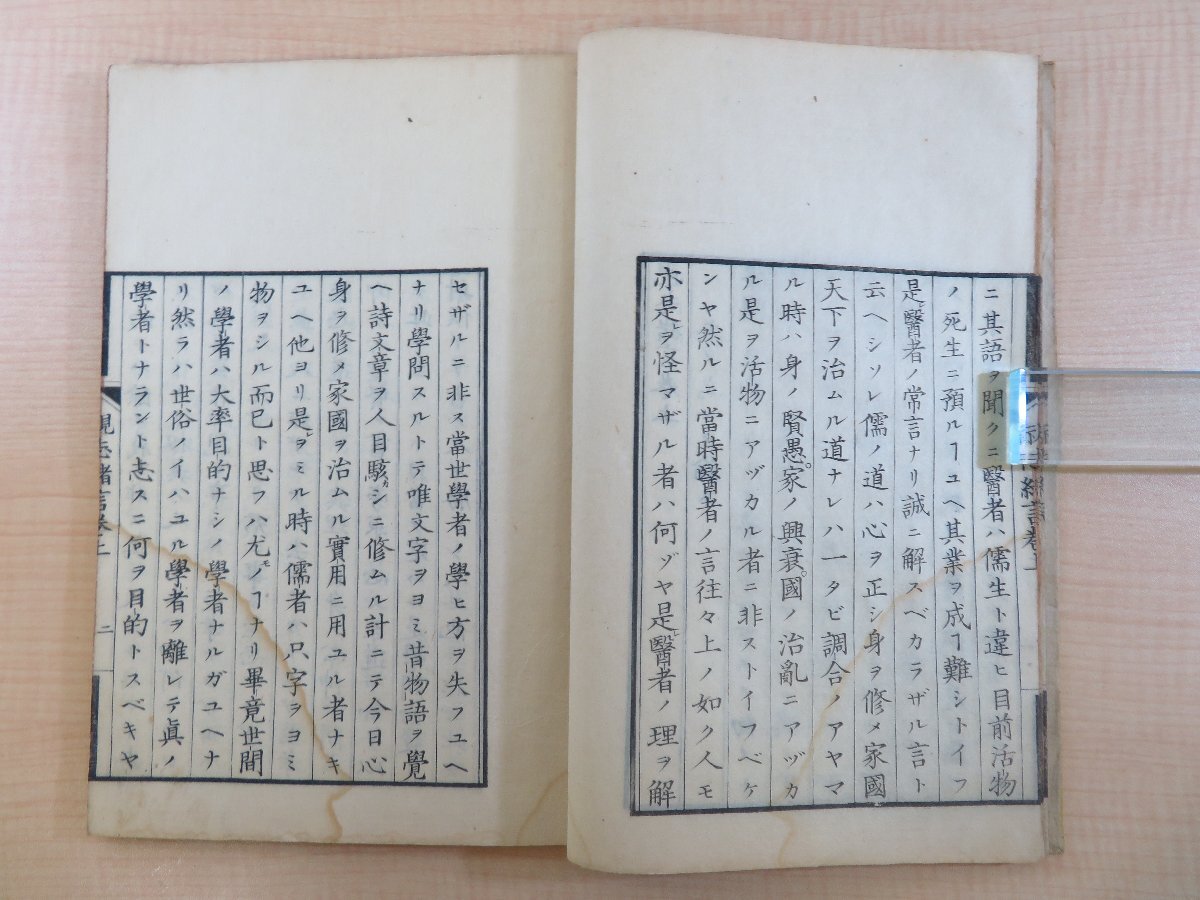 ニ其語ヲ聞クニ醫者ハ儒生ト違ヒ目前活物
ノ死生ニ預ルヿユヘ其業ヲ成ヿ難シトイフ
是醫者ノ常言ナリ誠ニ解スベカラザル言ト
云ヘシソレ儒ノ道ハ心ヲ正シ身ヲ修メ家國
天下ヲ治ムル道ナレハ一タビ調合ノアヤマ
ル時ハ身ノ賢愚家ノ興衰國ノ治亂ニアヅカ
ル是ヲ活物ニアヅカル者ニ非ストイフベケ
ンヤ然ルニ當時醫者ノ言往々上ノ如ク人モ
亦是ヲ怪マザル者ハ何ヅヤ是醫者ノ理ヲ解
セザルニ非ス當世學者ノ學ヒ方ヲ失フユヘ
ナリ學問スルトテ唯文字ヲヨミ昔物語ヲ覺
ヘ詩文章ヲ人目駭カシニ修ムル計ニテ今日心
身ヲ修メ家國ヲ治ムル實用ニ用ユル者ナキ
ユヘ他ヨリ是ヲミル時ハ儒者ハ只字ヲヨミ
物ヲシル而已ト思フハ尤モノヿナリ畢竟世間
ノ學者ハ大率目的ナシノ學者ナルガユヘナ
リ然ラハ世俗ノイハユル學者ヲ離レテ眞ノ
學者トナラント志スニ何ヲ目的トスベキヤ
二